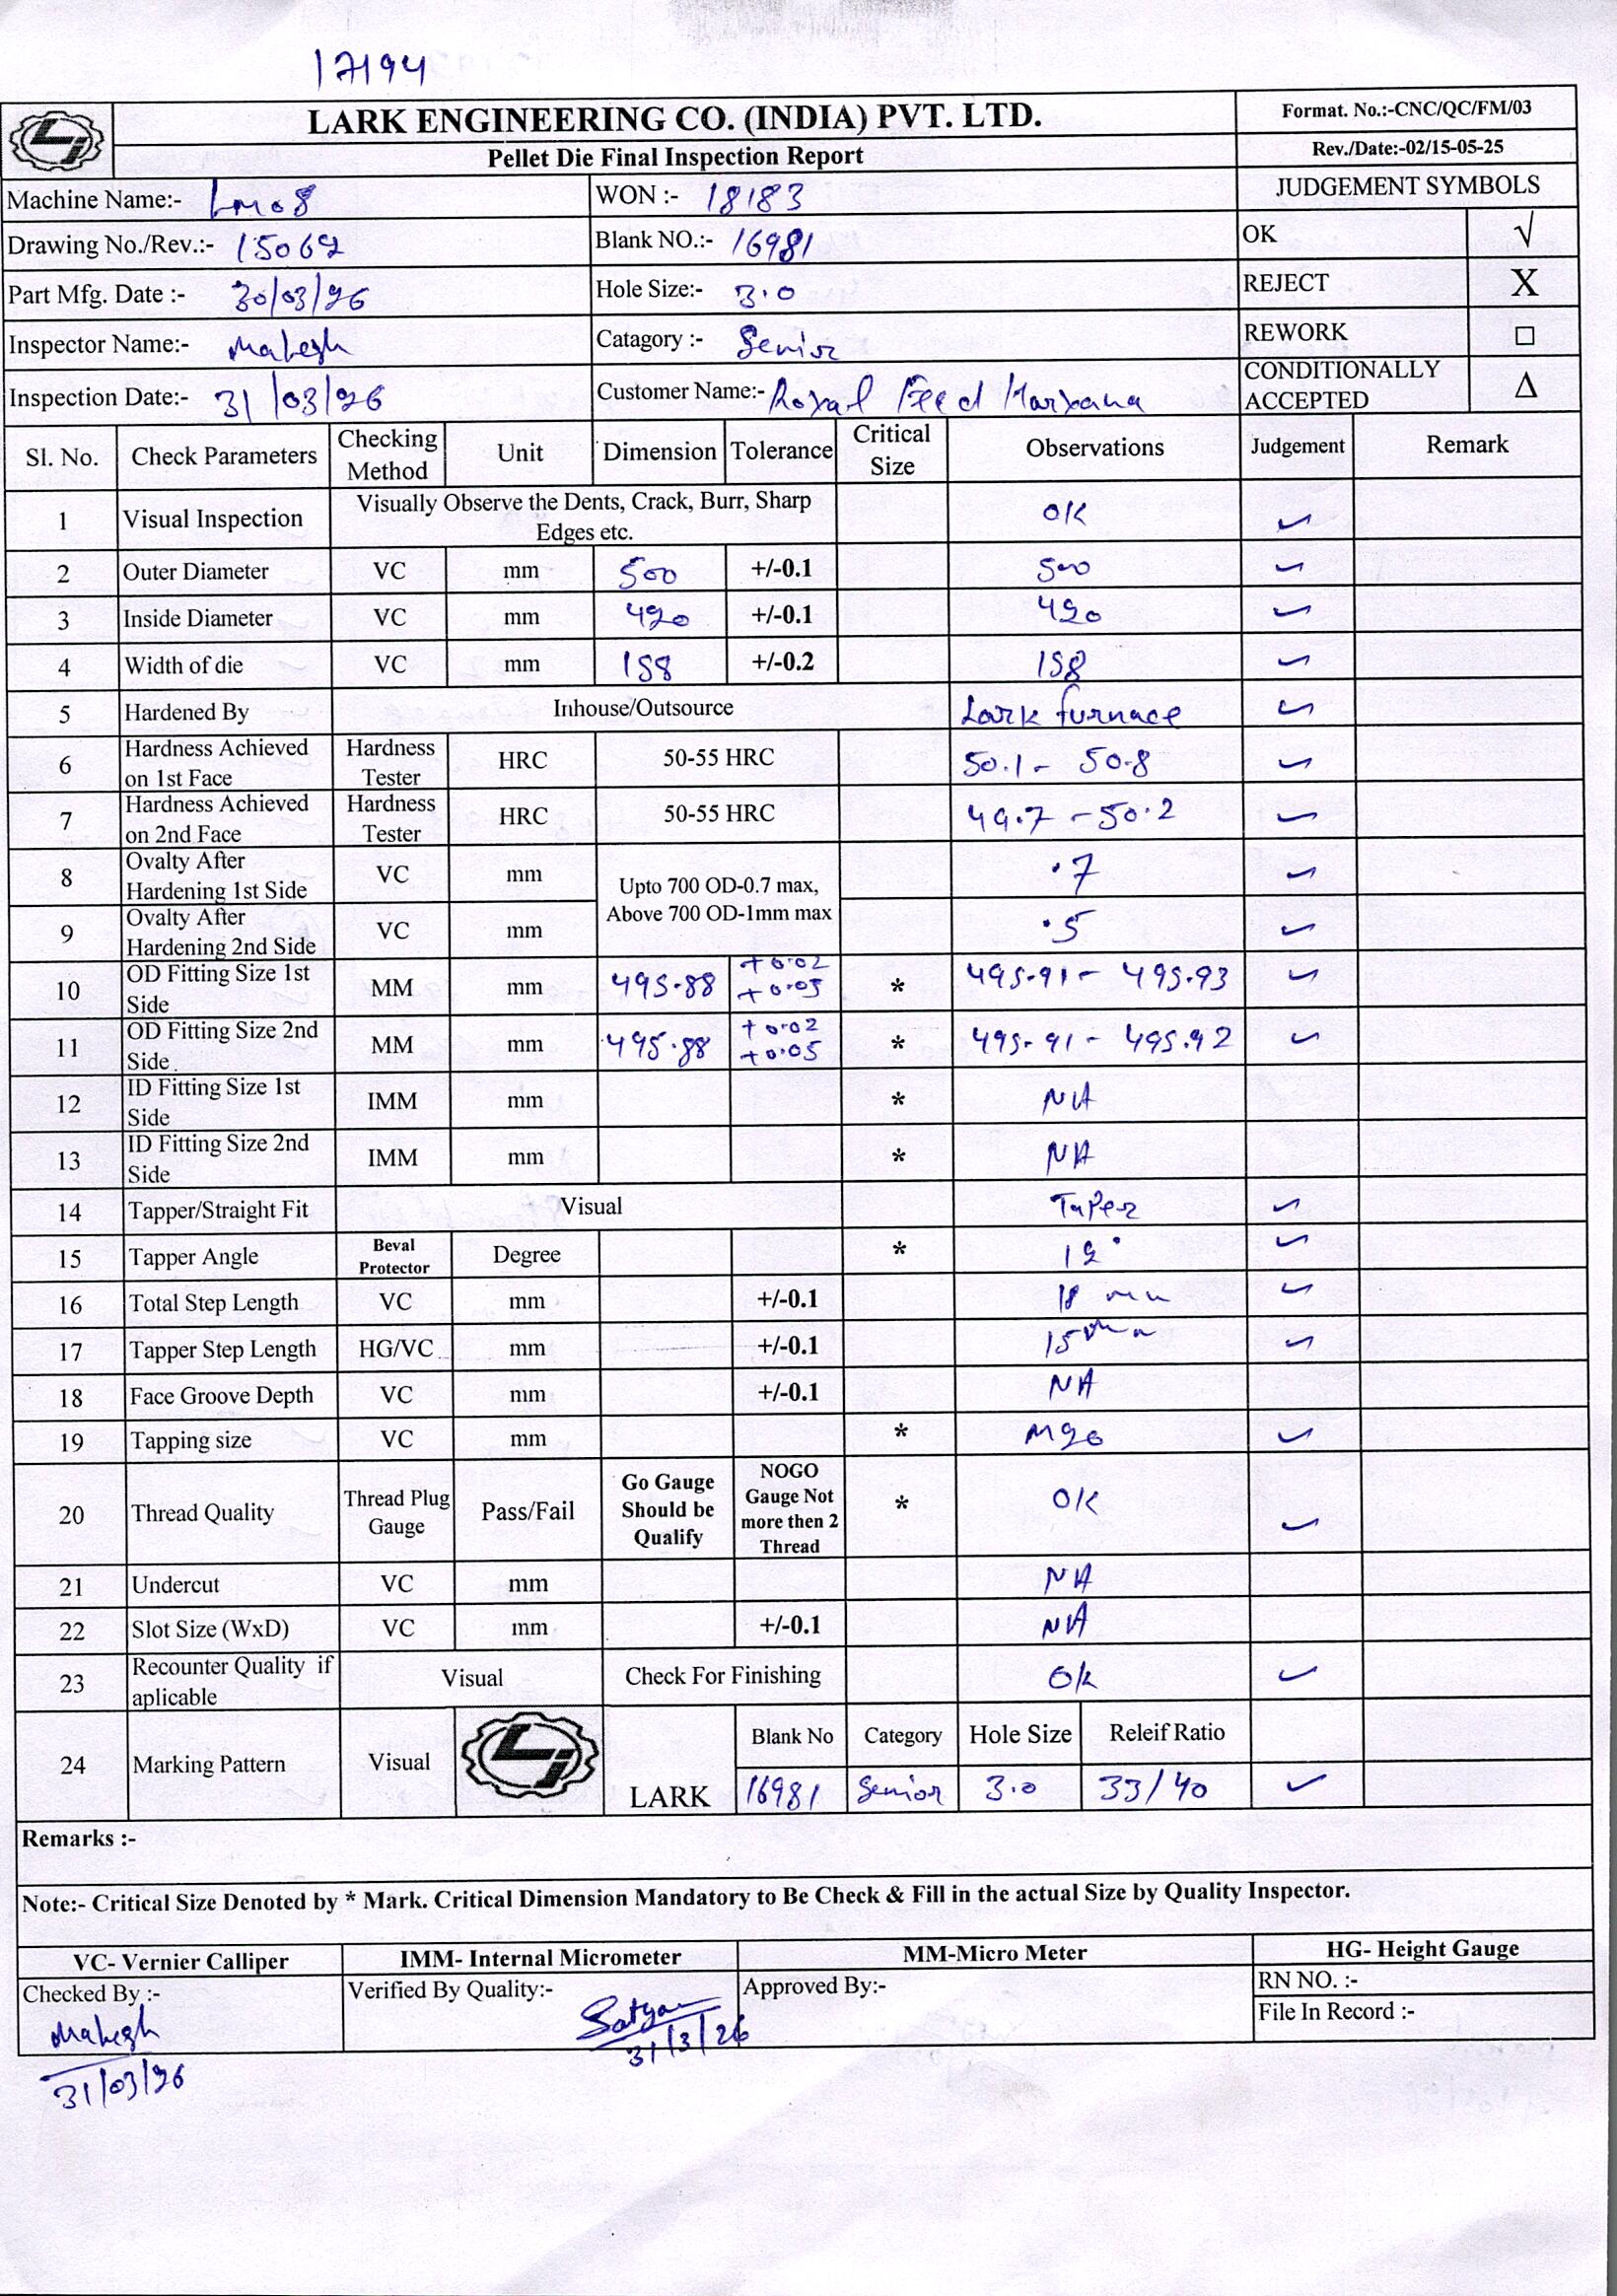 17194
LARK ENGINEERING CO. (INDIA) PVT. LTD.
Format. No.:-CNC/QC/FM/03
Pellet Die Final Inspection Report
Rev./Date:-02/15-05-25
Machine Name:- Lm08 WON :- 18183 JUDGEMENT SYMBOLS
Drawing No./Rev.:- 15062 Blank NO.:- 16981 OK √
Part Mfg. Date :- 30/03/26 Hole Size:- 3.0 REJECT X
Inspector Name:- Mahesh Catagory :- Senior REWORK □
Inspection Date:- 31/03/26 Customer Name:- Royal Feed Haryana CONDITIONALLY ACCEPTED Δ
Sl. No. Check Parameters Checking Method Unit Dimension Tolerance Critical Size Observations Judgement Remark
1 Visual Inspection Visually Observe the Dents, Crack, Burr, Sharp Edges etc. OK ✓
2 Outer Diameter VC mm 500 +/-0.1 500 ✓
3 Inside Diameter VC mm 420 +/-0.1 420 ✓
4 Width of die VC mm 158 +/-0.2 158 ✓
5 Hardened By Inhouse/Outsource Lark furnace ✓
6 Hardness Achieved on 1st Face Hardness Tester HRC 50-55 HRC 50.1 - 50.8 ✓
7 Hardness Achieved on 2nd Face Hardness Tester HRC 50-55 HRC 49.7 - 50.2 ✓
8 Ovalty After Hardening 1st Side VC mm Upto 700 OD-0.7 max, Above 700 OD-1mm max .7 ✓
9 Ovalty After Hardening 2nd Side VC mm .5 ✓
10 OD Fitting Size 1st Side MM mm 495.88 +0.02 +0.05 * 495.91 - 495.93 ✓
11 OD Fitting Size 2nd Side MM mm 495.88 +0.02 +0.05 * 495.91 - 495.92 ✓
12 ID Fitting Size 1st Side IMM mm * NA
13 ID Fitting Size 2nd Side IMM mm * NA
14 Tapper/Straight Fit Visual TaPer ✓
15 Tapper Angle Beval Protector Degree * 12° ✓
16 Total Step Length VC mm +/-0.1 18 mm ✓
17 Tapper Step Length HG/VC mm +/-0.1 15 mm ✓
18 Face Groove Depth VC mm +/-0.1 NA
19 Tapping size VC mm * M20 ✓
20 Thread Quality Thread Plug Gauge Pass/Fail Go Gauge Should be Qualify NOGO Gauge Not more then 2 Thread * OK ✓
21 Undercut VC mm NA
22 Slot Size (WxD) VC mm +/-0.1 NA
23 Recounter Quality if aplicable Visual Check For Finishing Ok ✓
24 Marking Pattern Visual LARK Blank No Category Hole Size Releif Ratio
16981 Senior 3.0 33/40 ✓
Remarks :-
Note:- Critical Size Denoted by * Mark. Critical Dimension Mandatory to Be Check & Fill in the actual Size by Quality Inspector.
VC- Vernier Calliper IMM- Internal Micrometer MM-Micro Meter HG- Height Gauge
Checked By :- Verified By Quality:- Approved By:- RN NO. :-
File In Record :-
Mahesh Satyam
31/03/26 31/3/26